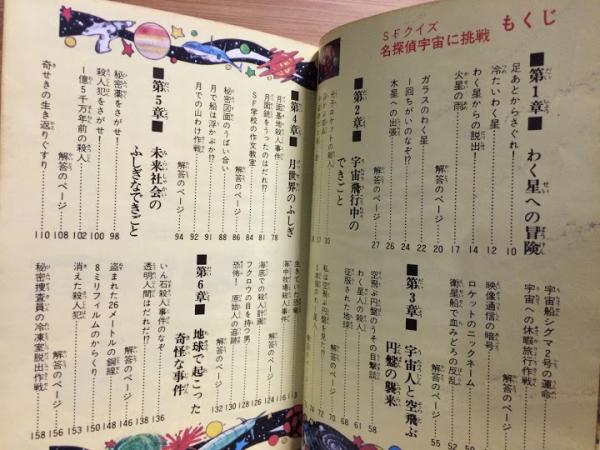 もくじ
SFクイズ
名探偵宇宙に挑戦
■第1章■ わく星への冒険
足あとからさぐれ!……10
冷たいわく星……12
わく星からの脱出!……14
火星の雨……17
解答のページ……20
ガラスのわく星……22
一回ちがいのなぞ!?……24
木星への出張……26
解答のページ……27
■第2章■ 宇宙飛行中のできごと
30
宇宙船シグマ2号の運命
宇宙への休暇旅行作戦
解答のページ
映像通信の暗号
ロケットのニックネーム
衛星船で血みどろの反乱……50
解答のページ……52
55
■第3章■ 宇宙人と空飛ぶ円盤の襲来
空飛ぶ円盤のうその目撃談……58
わく星人の殺人……61
征服された地球……65
解答のページ……68
私は空飛ぶ円盤を見た!
解答のページ
■第4章■ 月世界のふしぎ
月面基地殺人事件……78
月面銃をうったのはだれ!?……81
SF学校の作文教室……84
解答のページ……86
秘密図面のうばい合い……88
月で船は浮かぶか!?……90
月での山わけ作戦……92
解答のページ……94
■第5章■ 未来社会のふしぎなできごと
秘密薬をさがせ!……98
殺人犯をさがせ!……100
一億5千万年前の殺人……102
解答のページ……108
奇せきの生き返りぐすり……110
海中牧場殺人事件
海底での殺人計画
フクロウの目を持つ男
恐怖!原始人の追跡
解答のページ……132
■第6章■ 地球で起こった奇怪な事件
いん石殺人事件のなぞ……136
透明人間はだれだ!?……138
解答のページ……144
盗まれた26メートルの銅線……146
8ミリフィルムのからくり……148
消えた殺人犯……150
解答のページ……153
秘密捜査員の冷凍室脱出作戦……156
158